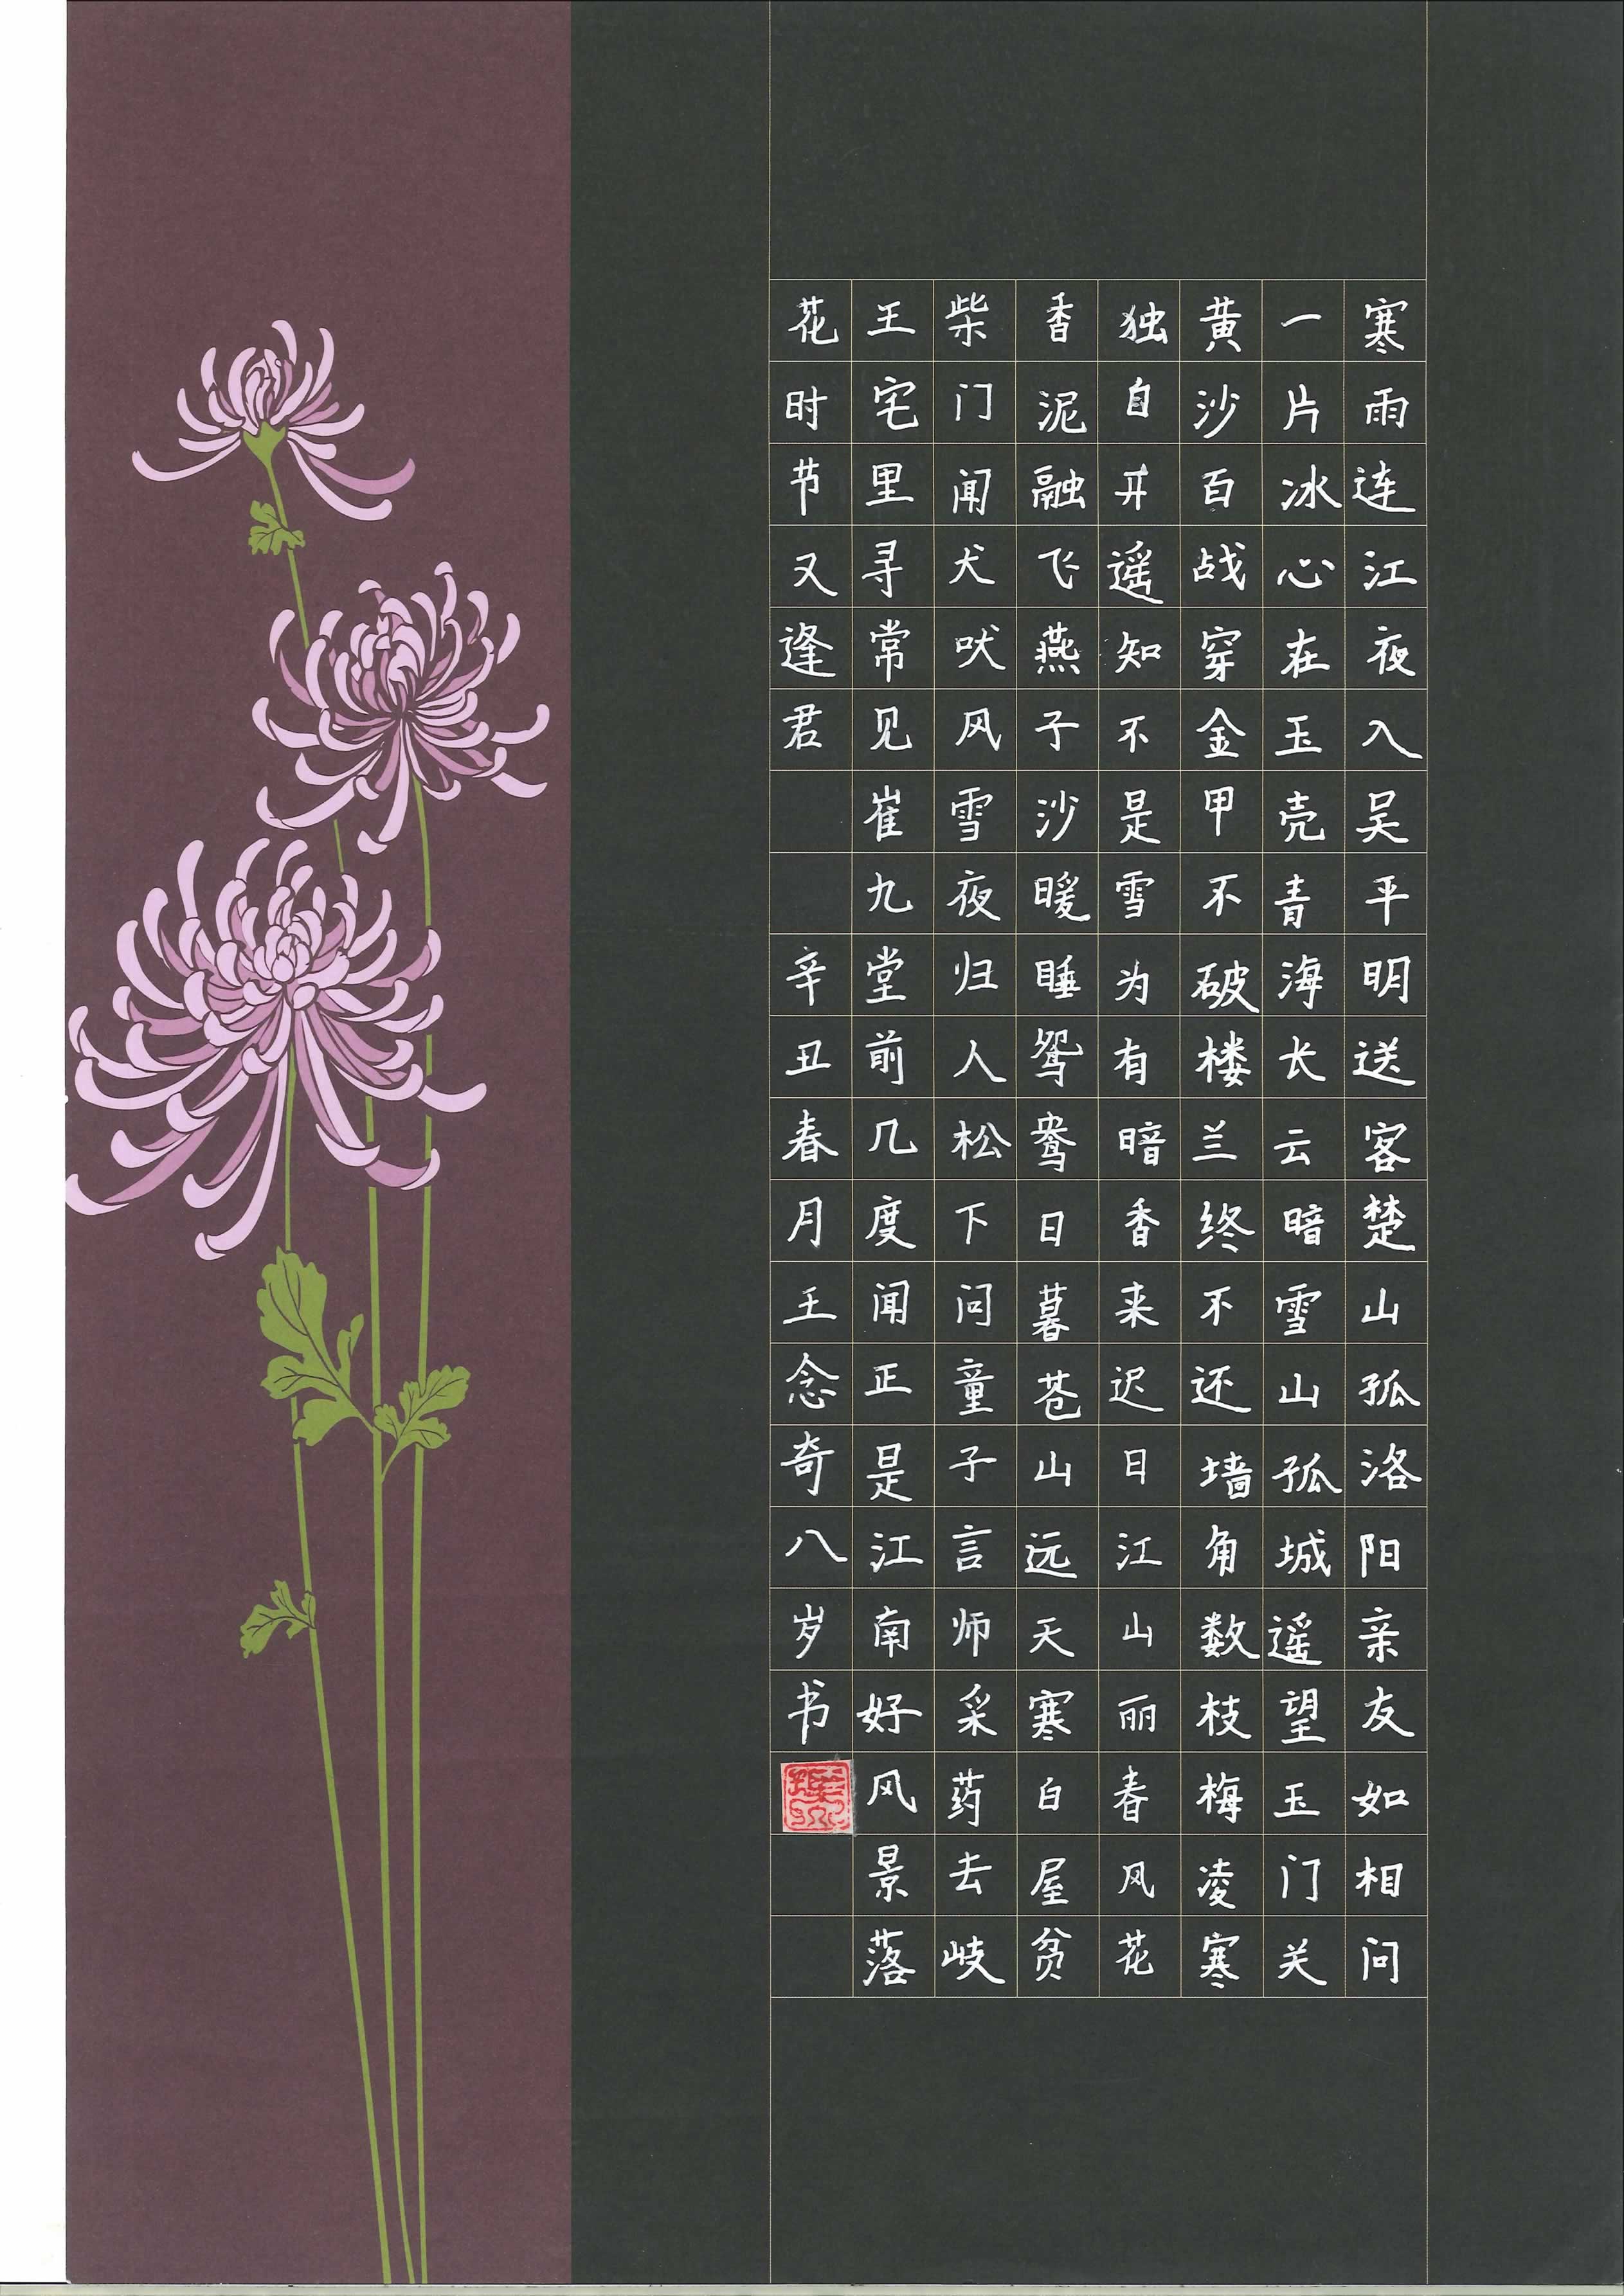 寒雨连江夜入吴平明送客楚山孤洛阳亲友如相问
一片冰心在玉壳青海长云暗雪山孤城遥望玉门关
黄沙百战穿金甲不破楼兰终不还墙角数枝梅凌寒
独自开遥知不是雪为有暗香来迟日江山丽春风花
香泥融飞燕子沙暖睡鸳鸯日暮苍山远天寒白屋贫
柴门闻犬吠风雪夜归人松下问童子言师采药去岐
王宅里寻常见崔九堂前几度闻正是江南好风景落
花时节又逢君 辛丑春月王念奇八岁书